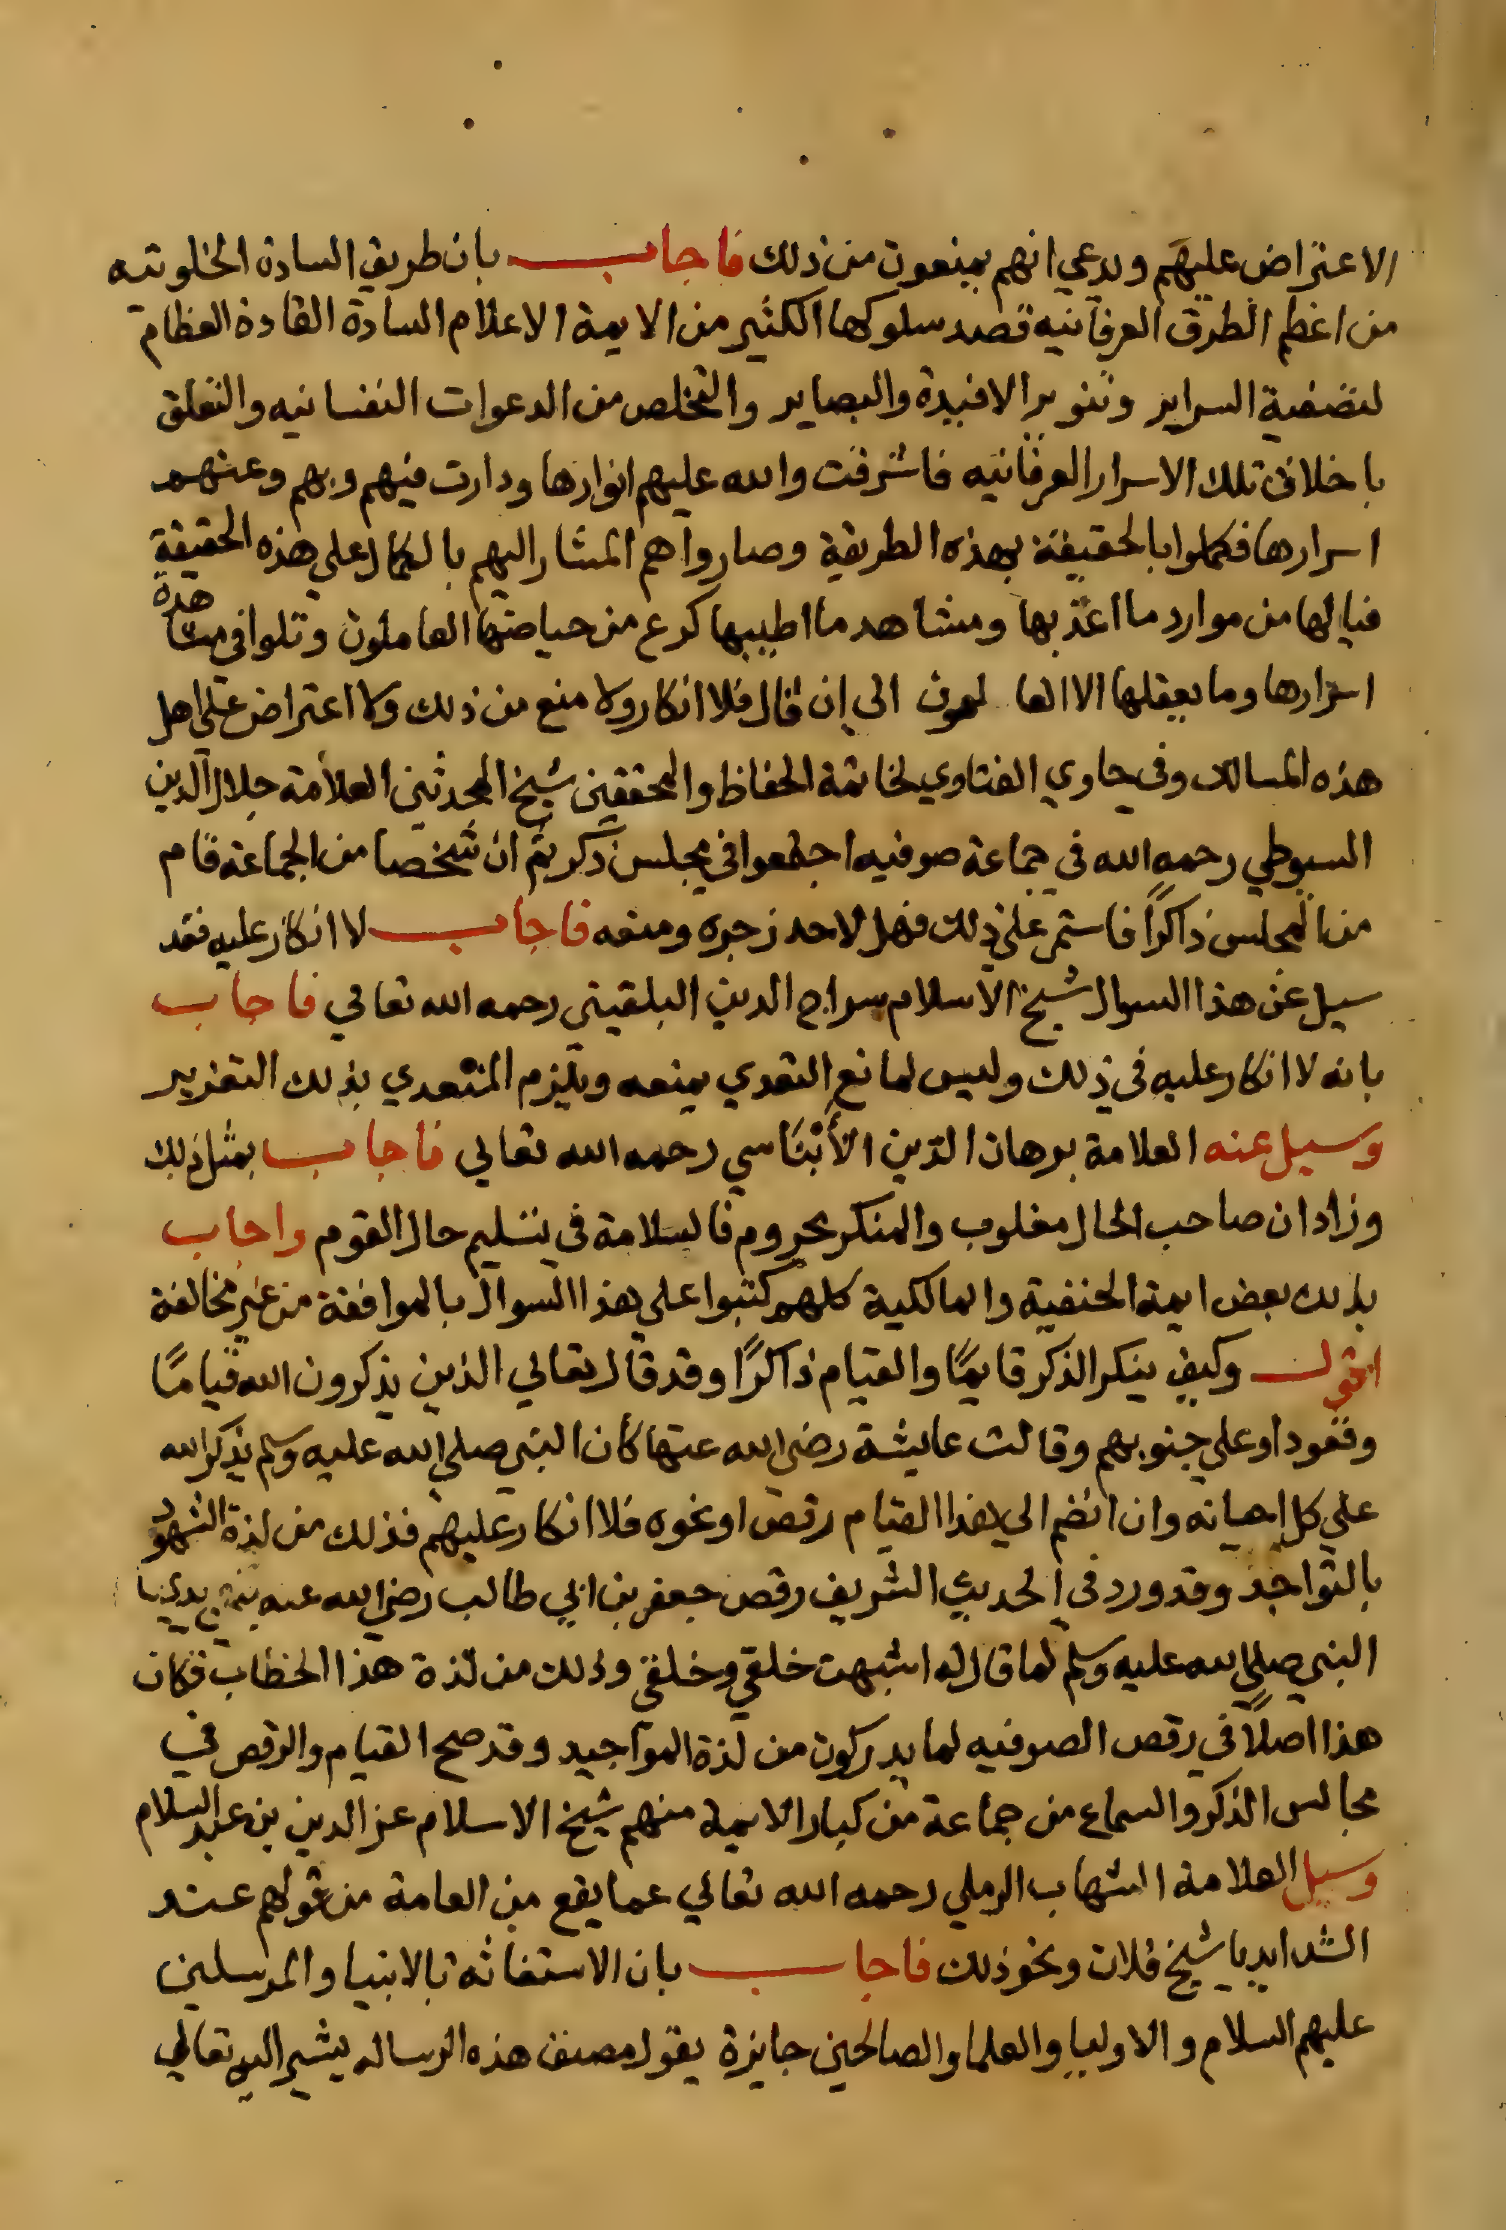 الاعتراض عليهم ويدعي انهم يمنعون من ذلك فاجاب بان طريق السادة الخلوتيه
من اعظم الطرق العرفانيه قصد سلوكها الكثير من الايمة الاعلام السادة القادة العظام
لتصفية السراير وتنوير الافيدة والبصاير والتخلص من الدعوات النفسانيه والتعلق
باخلاق تلك الاسرار العرفانيه فاشرقت والله عليهم انوارها ودارت فيهم وبهم وعنهم
اسرارها فكملوا بالحقيقة بهذه الطريقة وصاروا هم المشار اليهم بالكمال على هذه الحقيقة
فيالها من موارد ما اعذبها ومشاهد ما اطيبها كرع من حياضها العاملون وتلوا في مشاهدة
اسرارها وما يعقلها الا العا لمون الى ان قال فلا انكار ولا منع من ذلك ولا اعتراض على اهل
هذه المسالك وفي حاوي الفتاوي لخاتمة الحفاظ والمحققين شيخ المحدثين العلامة جلال الدين
السيوطي رحمه الله في جماعة صوفيه اجتمعوا في مجلس ذكر ثم ان شخصا من الجماعة قام
من المجلس ذاكرًا فاستمر على ذلك فهل لاحد زجره ومنعه فاجاب لا انكار عليه فقد
سيل عن هذا السوال شيخ الاسلام سراج الدين البلقيني رحمه الله تعالي فاجاب
بانه لا انكار عليه في ذلك وليس لمانع التعدي بمنعه ويلزم المتعدي بذلك التعزير
وسيل عنه العلامة برهان الدين الأَبْنَاسي رحمه الله تعالي فاجاب بمثل ذلك
وزاد ان صاحب الحال مغلوب والمنكر محروم فالسلامة في تسليم حال القوم واجاب
بذلك بعض ايمة الحنفية والمالكية كلهم كتبوا على هذا السوال بالموافقة من غير مخالفة
اقول وكيف ينكر الذكر قايمًا والقيام ذاكرًا وقد قال تعالي الذين يذكرون الله قيامًا
وقعودا وعلى جنوبهم وقالت عايشة رضي الله عنها كان النبي صلى الله عليه وسلم يذكر الله
علي كل احيانه وان انضم الي هذا القيام رقص او نحوه فلا انكار عليهم فذلك من لذة الشهود
بالتواجد وقد ورد في الحديث الشريف رقص جعفر بن ابي طالب رضي الله عنه بين يدي
النبي صلى الله عليه وسلم لما قال له اشبهت خلقي وخلقي وذلك من لذة هذا الخطاب فكان
هذا اصلاً في رقص الصوفيه لما يدركون من لذة المواجيد وقد صح القيام والرقص في
مجالس الذكر والسماع من جماعة من كبار الايمة منهم شيخ الاسلام عز الدين بن عبد السلام
وسيل العلامة الشهاب الرملي رحمه الله تعالي عما يقع من العامة من قولهم عند
الشدايد يا شيخ فلان ونحو ذلك فاجاب بان الاستغاثة بالانبيا والمرسلين
عليهم السلام والاوليا والعلما والصالحين جايزة يقول مصنف هذه الرساله يشير اليه تعالي